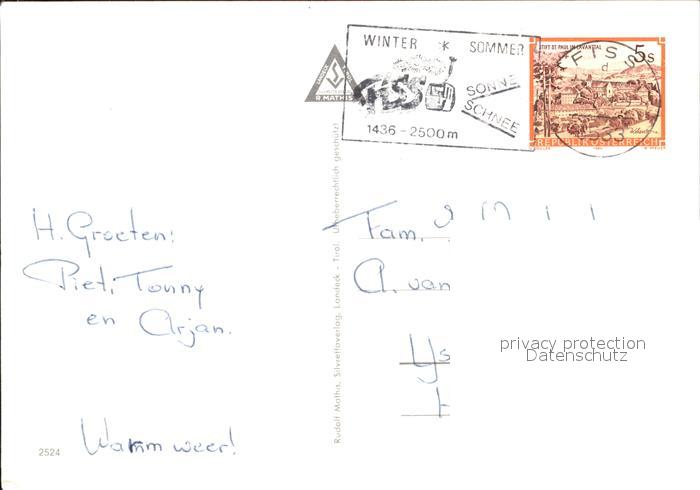 WINTER * SOMMER
FISS
SONNE
SCHNEE
1436-2500m
STIFT ST. PAUL IM LAVANTTAL
5 S
REPUBLIK ÖSTERREICH
FISS
R MATHIS
H. Groeten:
Piet, Tonny
en Arjan.
Warm weer!
2524
Rudolf Mathis, Silvrettaverlag, Landeck - Tirol. Urheberrechtlich geschützt
Fam.
A. van
privacy protection
Datenschutz